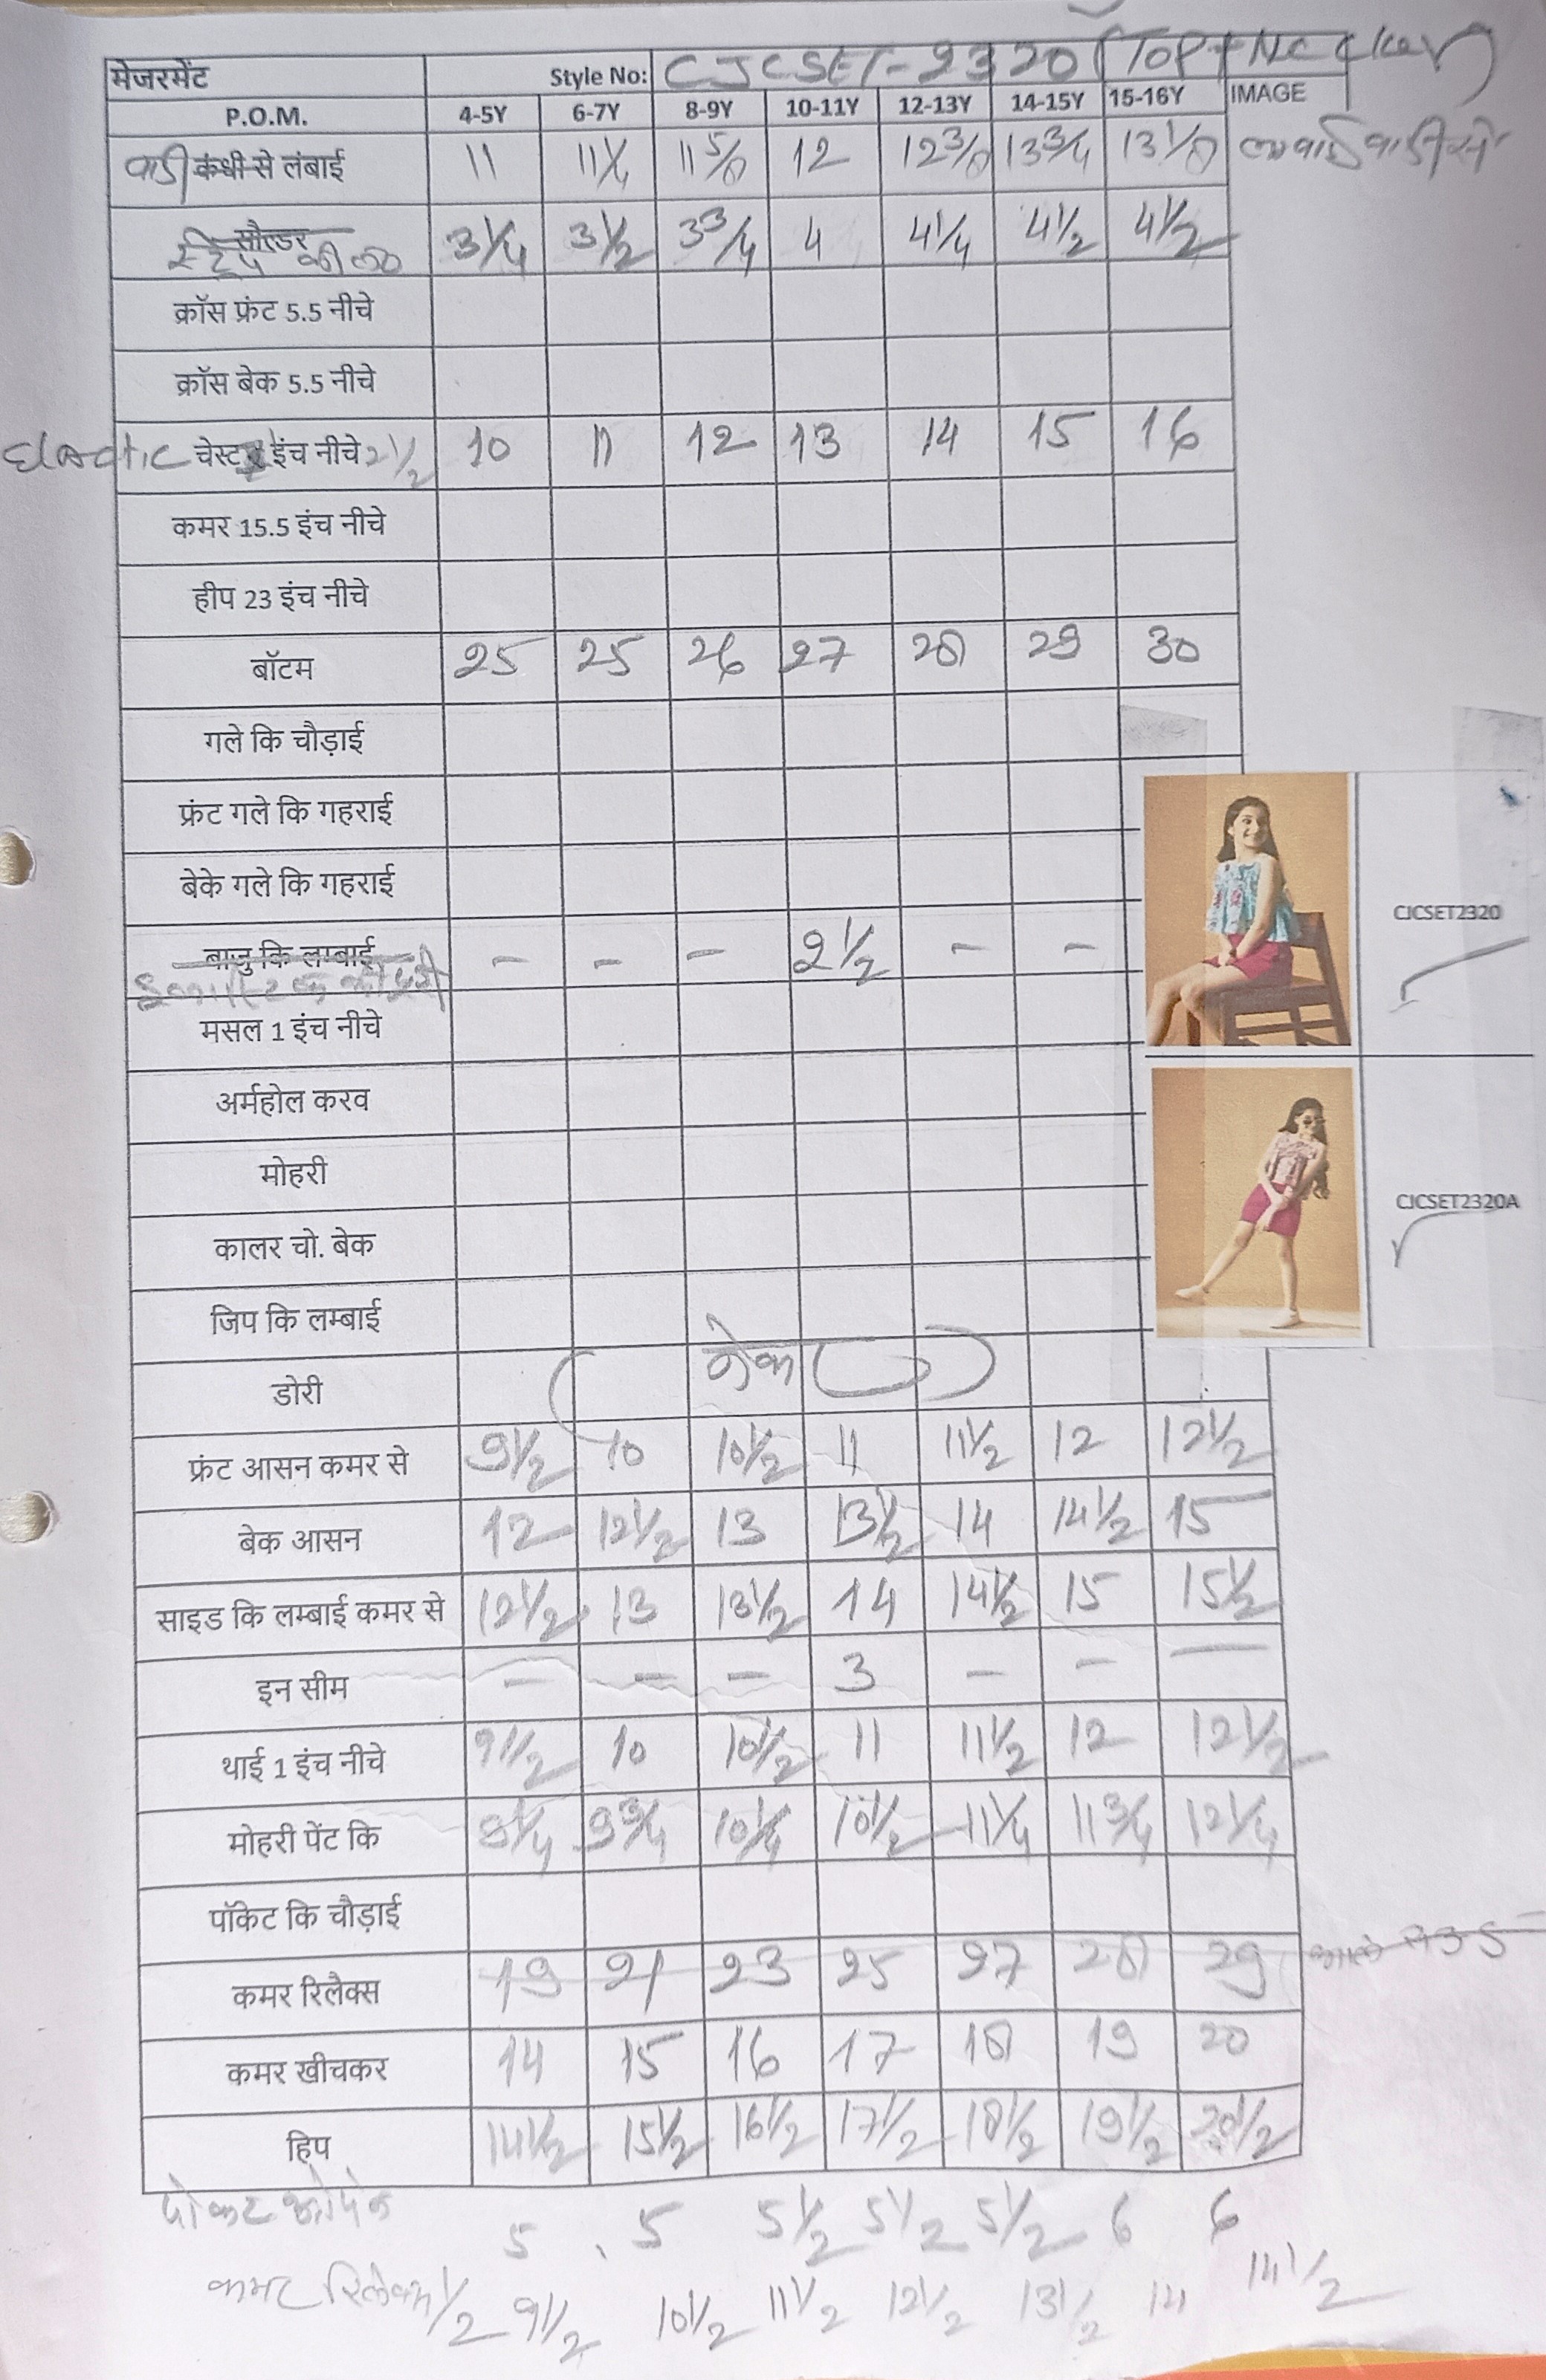 मेजरमेंट Style No: CJCSET-2320 (TOP+Necker)
P.O.M. 4-5Y 6-7Y 8-9Y 10-11Y 12-13Y 14-15Y 15-16Y IMAGE
वाडी कंधी से लंबाई 11 11 1/4 11 5/8 12 12 3/8 13 3/4 13 1/8
सौल्डर स्ट्रेप की ल० 3 1/4 3 1/2 3 3/4 4 4 1/4 4 1/2 4 1/2
क्रॉस फ्रंट 5.5 नीचे
क्रॉस बेक 5.5 नीचे
Elastic चेस्ट इंच नीचे 2 1/2 10 11 12 13 14 15 16
कमर 15.5 इंच नीचे
हीप 23 इंच नीचे
बॉटम 25 25 26 27 28 29 30
गले कि चौड़ाई
फ्रंट गले कि गहराई
बेके गले कि गहराई
CJCSET2320
बाजु कि लम्बाई - - - 2 1/2 - -
मसल 1 इंच नीचे
अर्महोल करव
मोहरी
CJCSET2320A
कालर चो. बेक
जिप कि लम्बाई
डोरी
फ्रंट आसन कमर से 9 1/2 10 10 1/2 11 11 1/2 12 12 1/2
बेक आसन 12 12 1/2 13 13 1/2 14 14 1/2 15
साइड कि लम्बाई कमर से 12 1/2 13 13 1/2 14 14 1/2 15 15 1/2
इन सीम - - - 3 - - -
थाई 1 इंच नीचे 9 1/2 10 10 1/2 11 11 1/2 12 12 1/2
मोहरी पेंट कि 9 1/4 9 3/4 10 1/4 10 1/2 11 1/4 11 3/4 12 1/4
पॉकेट कि चौड़ाई
कमर रिलैक्स 19 21 23 25 27 28 29
कमर खीचकर 14 15 16 17 18 19 20
हिप 14 1/2 15 1/2 16 1/2 17 1/2 18 1/2 19 1/2 20 1/2
पोकट ओपन 5 5 5 1/2 5 1/2 5 1/2 6 6
कमर रिलेक्स 1/2 9 1/2 10 1/2 11 1/2 12 1/2 13 1/2 14 14 1/2